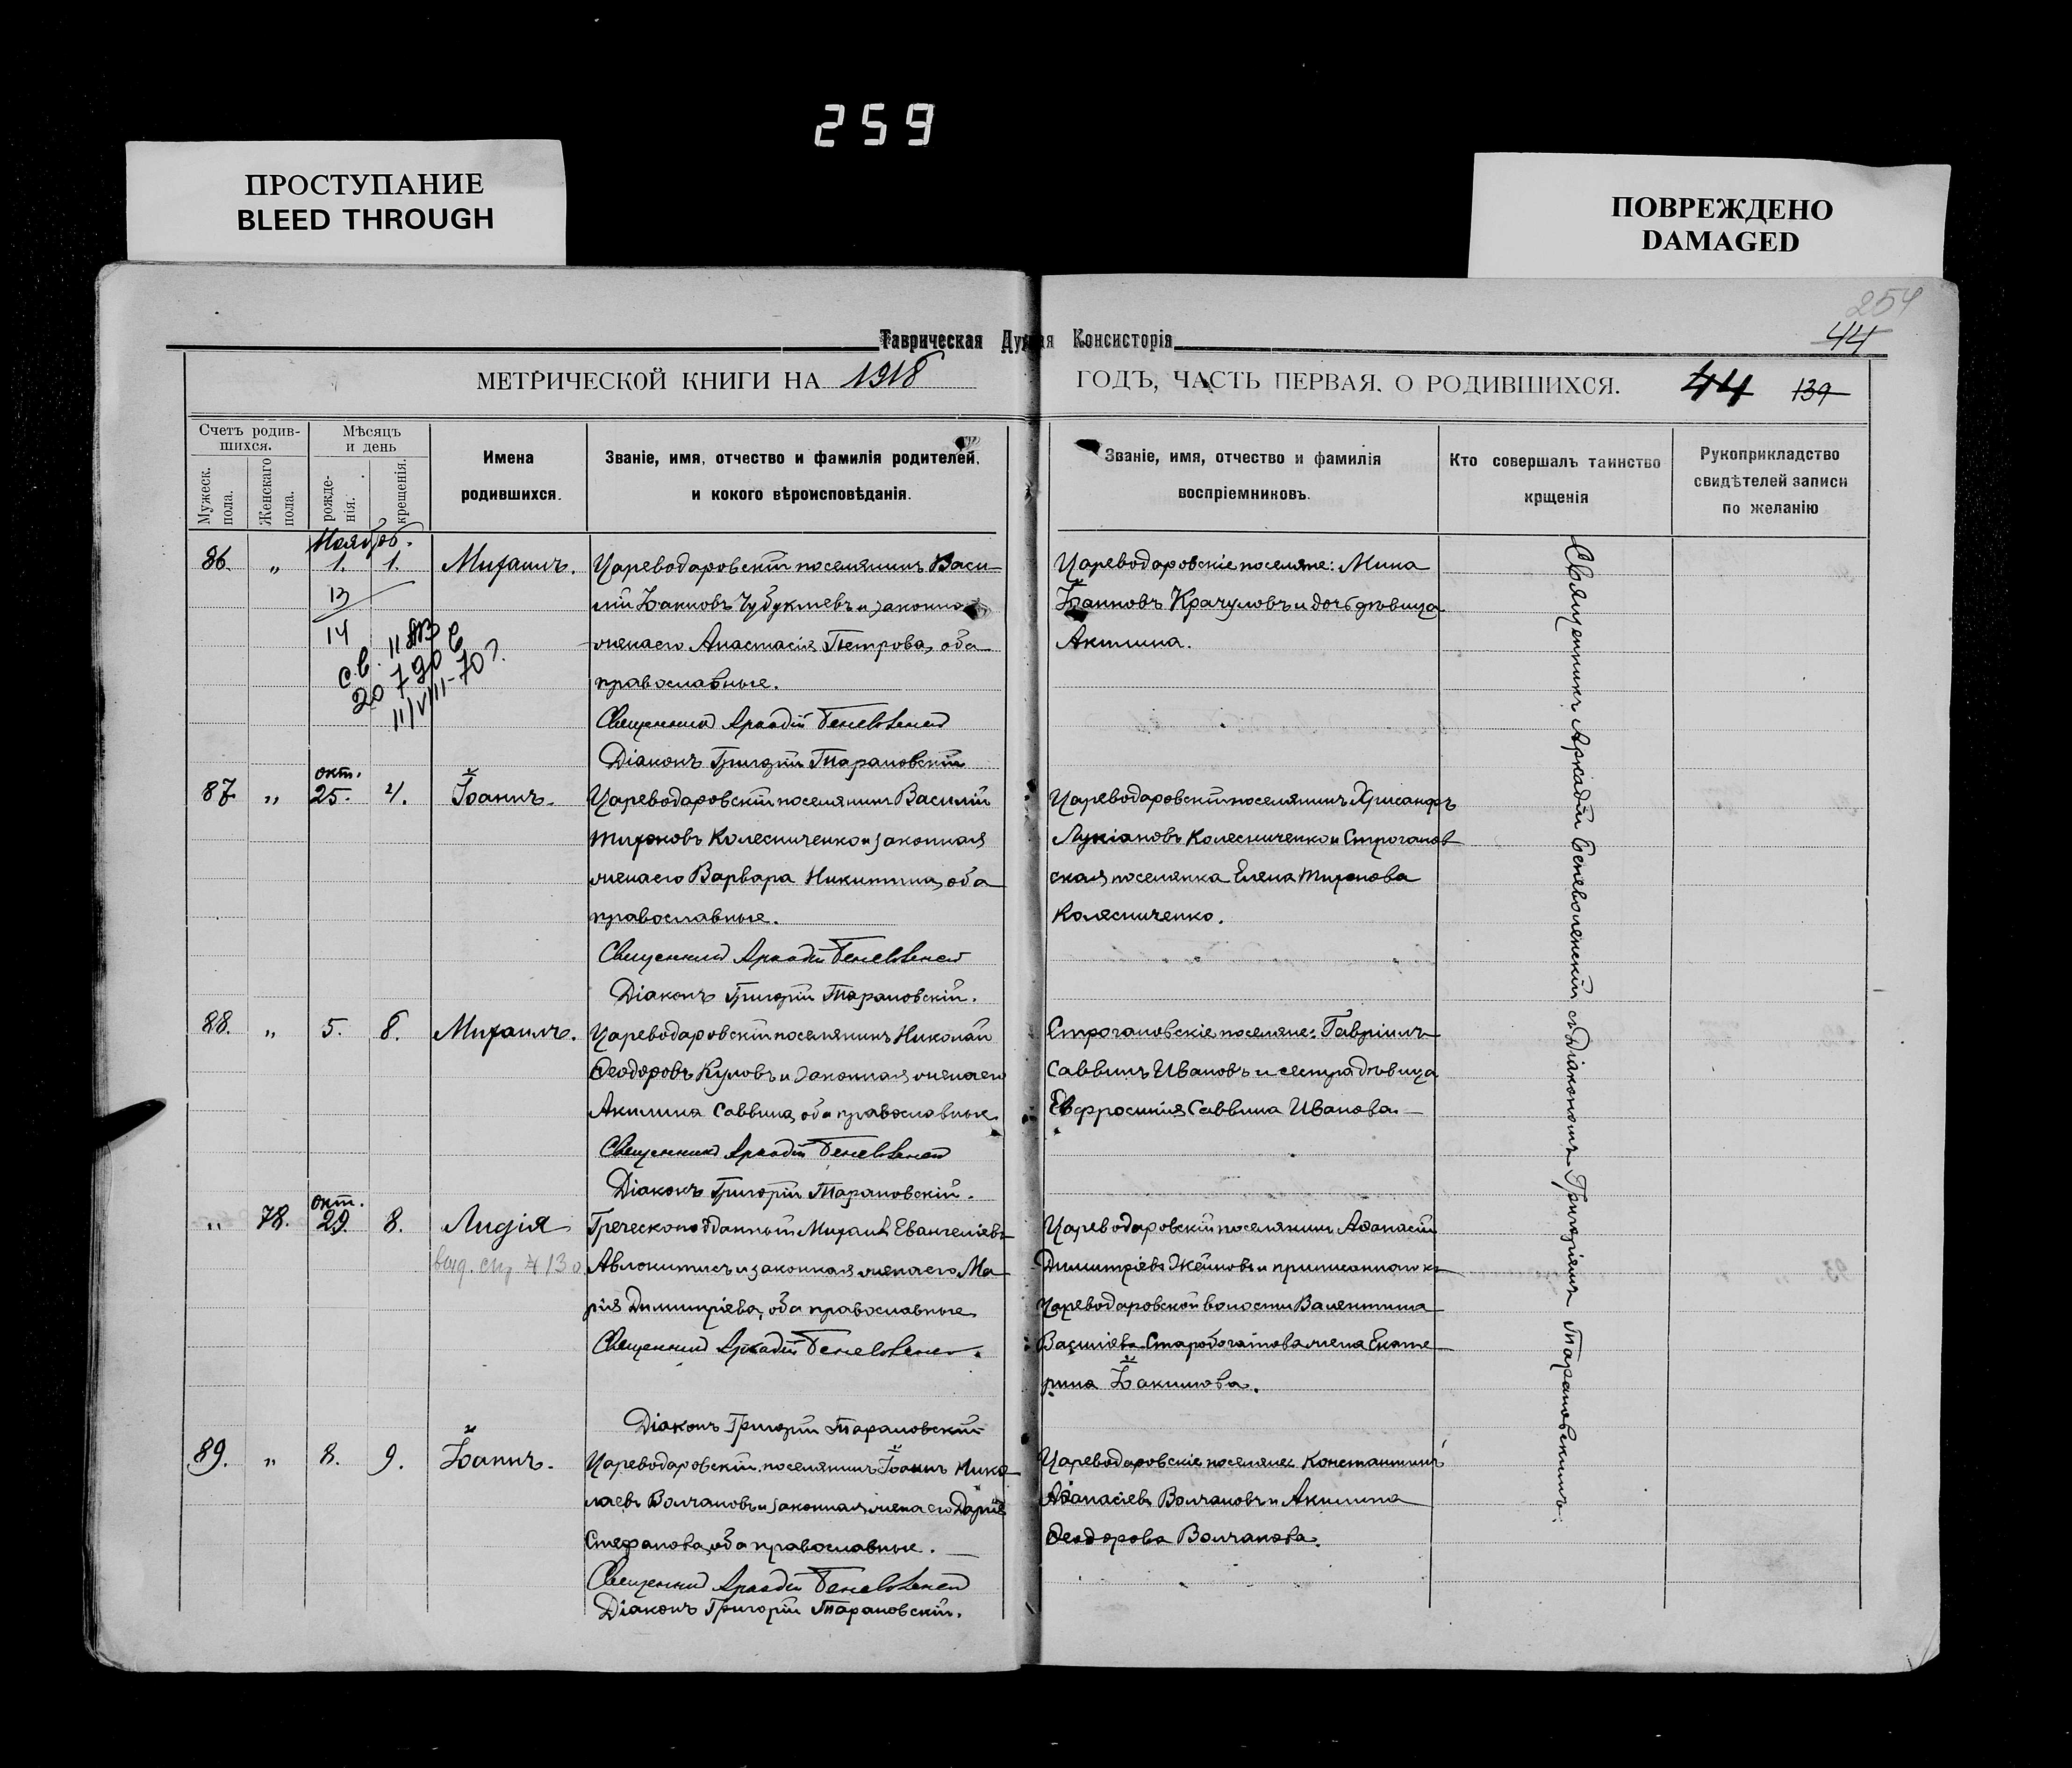 259
ПРОСТУПАНИЕ
BLEED THROUGH
ПОВРЕЖДЕНО
DAMAGED
254
44
Таврическая Духовная Консисторія
МЕТРИЧЕСКОЙ КНИГИ НА 1918 ГОДЪ, ЧАСТЬ ПЕРВАЯ. О РОДИВШИХСЯ. 44 139
Счетъ родив-
шихся.
Мѣсяцъ
и день
Мужеск.
пола.
Женскаго
пола.
рожде-
нія.
крещенія.
Имена
родившихся.
Званіе, имя, отчество и фамилія родителей,
и кокого вѣроисповѣданія.
Званіе, имя, отчество и фамилія
воспріемниковъ.
Кто совершалъ таинство
крщенія
Рукоприкладство
свидѣтелей записи
по желанію
Ноябрь.
86. „ 1. 1. Михаилъ.
13
14
св. II ЯЗ
20790
11/VIII-70г.
Цареводаровскій поселянинъ Васи-
лій Іоанновъ Чубуклиевъ и законная
жена его Анастасія Петрова, оба
православные.
Священникъ Аркадій Беневоленскій
Діаконъ Григорій Тарановскій
Цареводаровскіе поселяне: Мина
Іоанновъ Крачуловъ и дочь дѣвица
Акилина.
окт.
87. „ 25. 4. Іоаннъ.
Цареводаровскій поселянинъ Василій
Тихоновъ Колесниченко и законная
жена его Варвара Никитина, оба
православные.
Священникъ Аркадій Беневоленскій
Діаконъ Григорій Тарановскій.
Цареводаровскій поселянинъ Хрисанфъ
Лукіановъ Колесниченко и Строганов
ская поселянка Елена Тихонова
Колесниченко.
88. „ 5. 8. Михаилъ.
Цареводаровскій поселянинъ Николай
Ѳеодоровъ Куловъ и законная жена его
Акилина Саввина, оба православные
Священникъ Аркадій Беневоленскій
Діаконъ Григорій Тарановскій.
Строгановскіе поселяне: Гавріилъ
Саввинъ Ивановъ и сестра дѣвица
Евфросинія Саввина Иванова.
окт.
„ 78. 29. 8. Лидія
выд. спр № 130
Греческоподданный Михаилъ Евангеліевъ
Авлокитисъ и законная жена его Ма
рія Димитріева, оба православные
Священникъ Аркадій Беневоленскій.
Діаконъ Григорій Тарановскій
Цареводаровскій поселянинъ Аѳанасій
Димитріевъ Жейновъ и приписаннаго къ
Цареводаровской волости Валентина
Василіева Старобогатова жена Екате
рина Іоакимова.
89. „ 8. 9. Іоаннъ.
Цареводаровскій поселянинъ Іоаннъ Нико
лаевъ Волчановъ и законная жена его Дарія
Стефанова, оба православные.
Священникъ Аркадій Беневоленскій
Діаконъ Григорій Тарановскій.
Цареводаровскіе поселяне Константинъ
Аѳанасіевъ Волчановъ и Акилина
Ѳеодорова Волчанова.
Священникъ Аркадій Беневоленскій съ Діакономъ Григоріемъ Тарановскимъ.